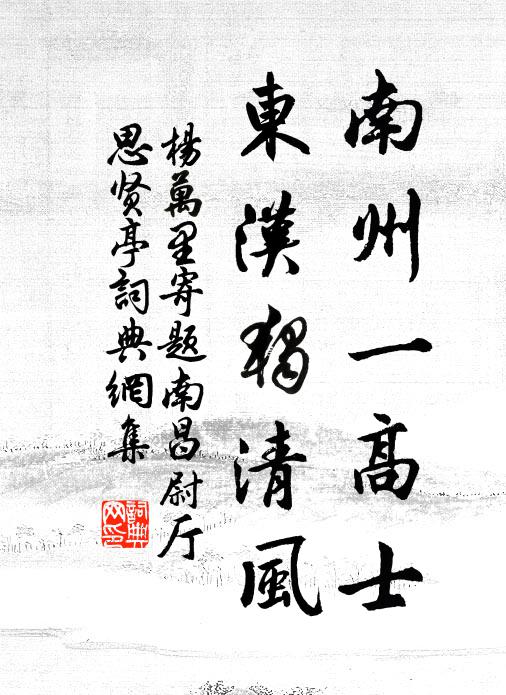 南州一高士
東漢獨清風
楊萬里寄题南昌尉厅
思贤亭詞典網集
詞典
网印